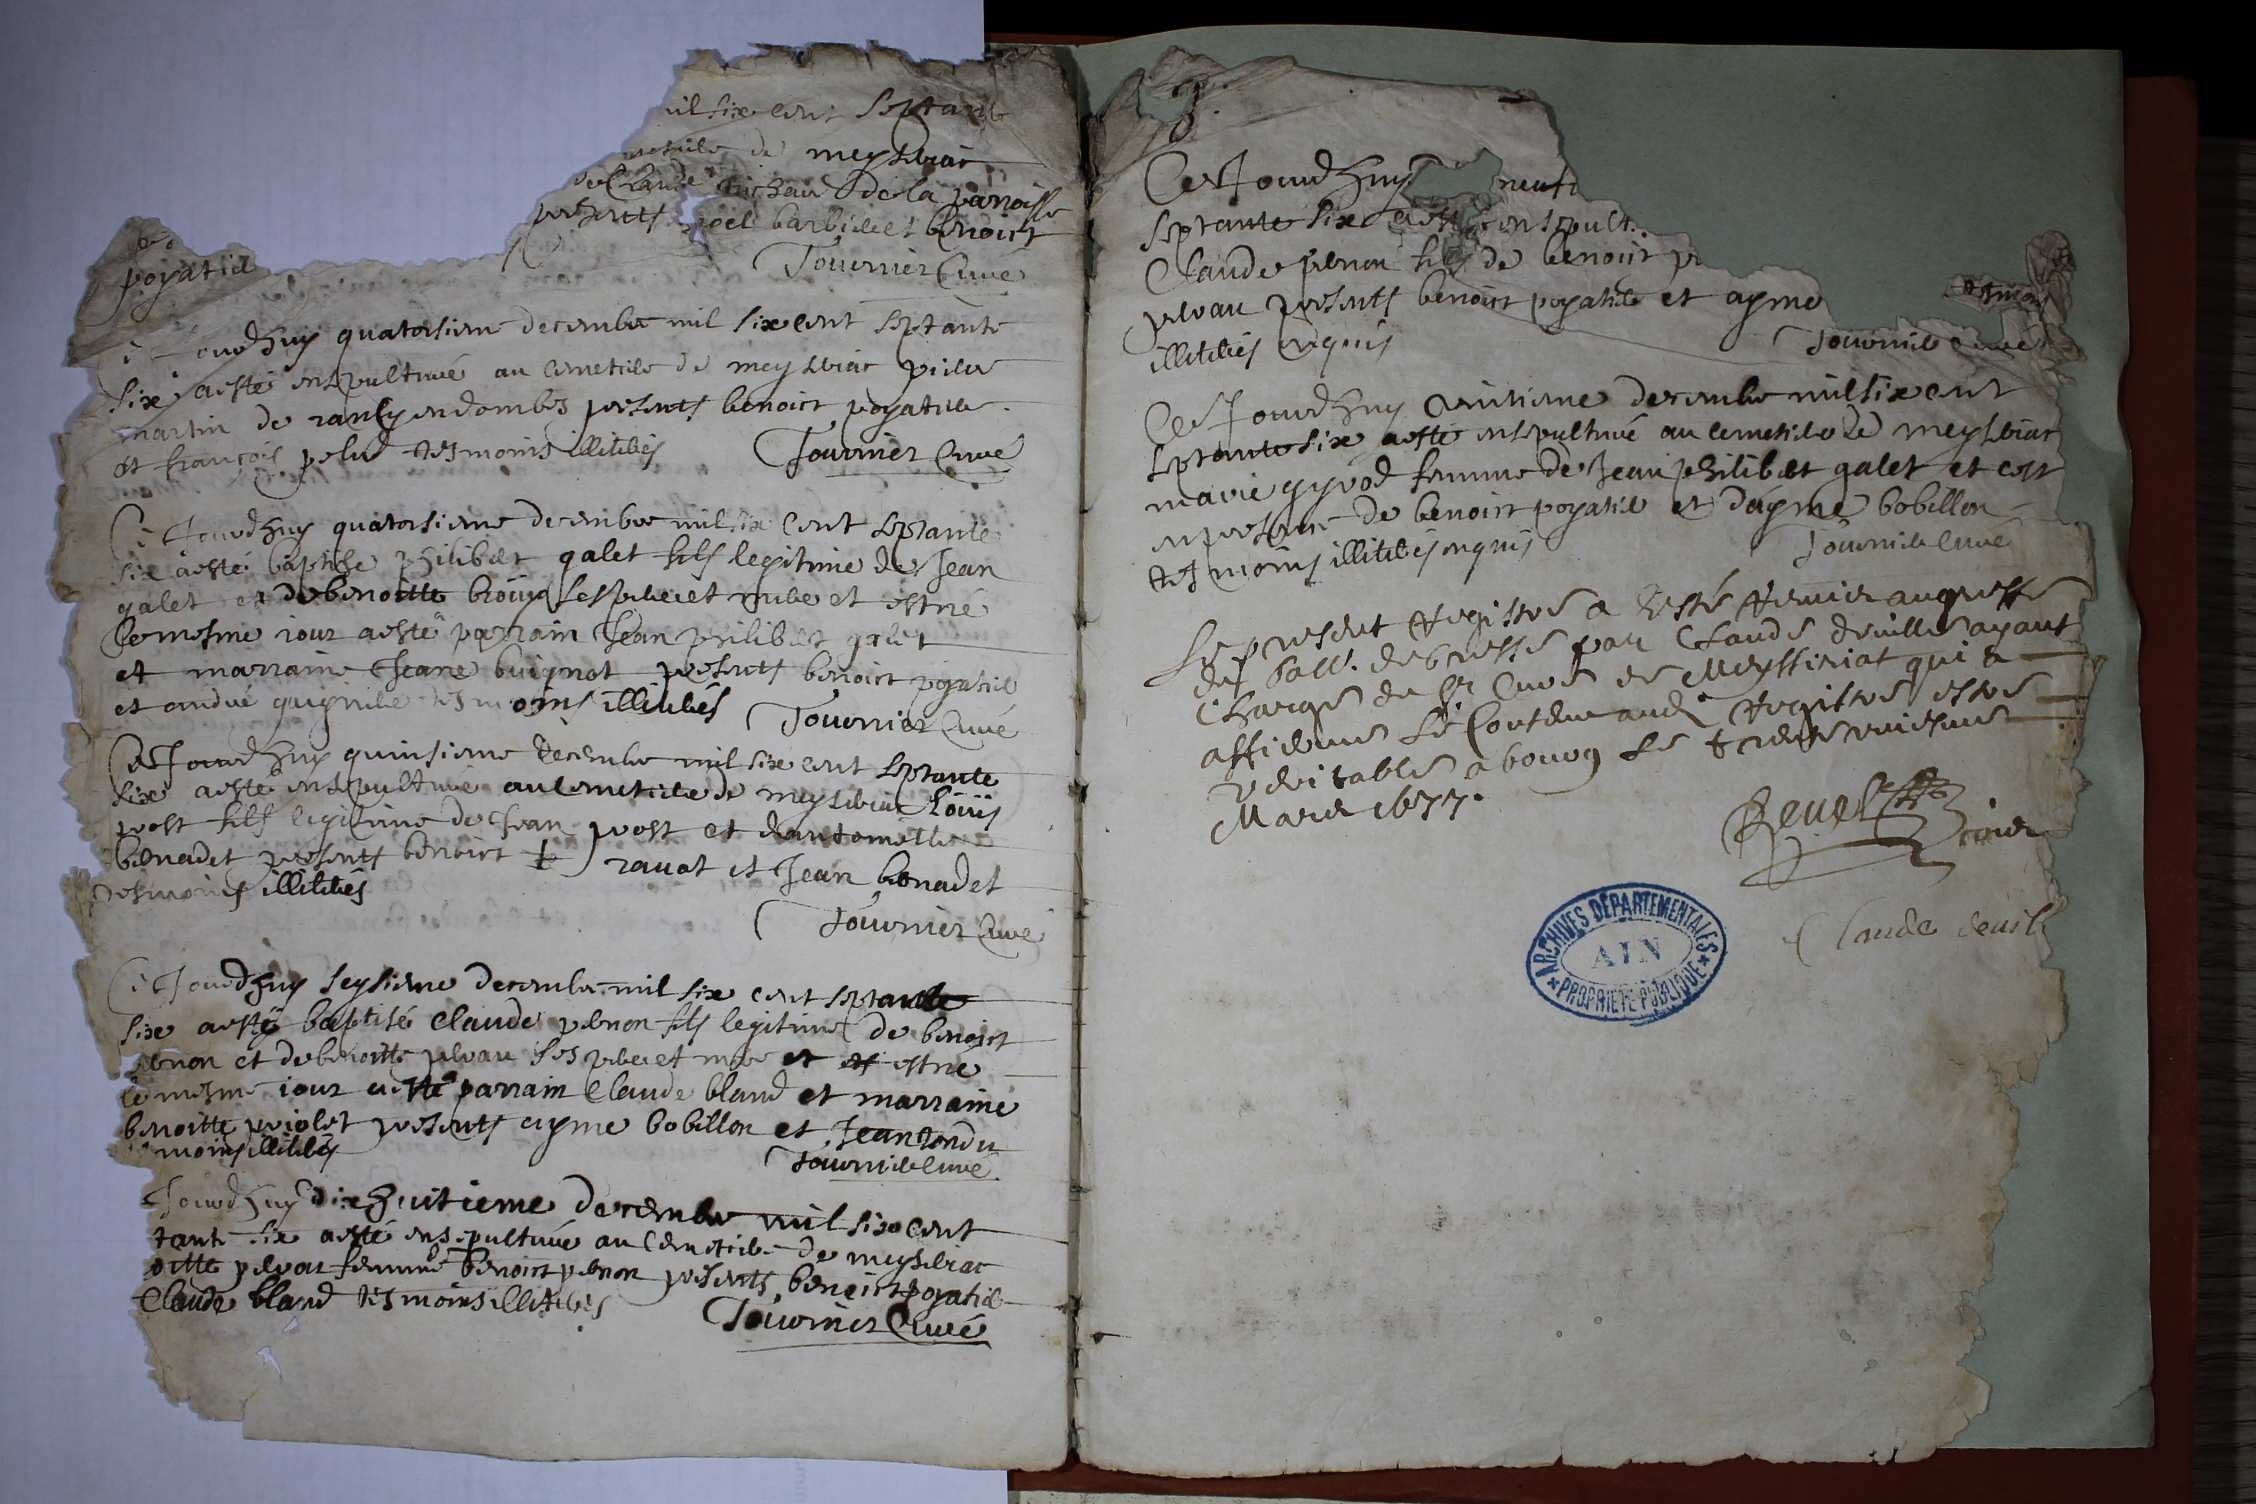 il six cent septante
de meyseriac
de Claude michau de la parroisse
presents noel barbier et benoist
poyatie
Tournier Curé
Jourdhuy quatorsieme decembre mil six cent septante
six a esté ensepulturé au cemetiere de meyseriac
martin de rancy en dombes presents benoist poyatier
et françois tesmoins illiterés
Tournier Curé
Ce Jourdhuy quatorsieme decembre mil six cent septante
six a esté baptisé philibert galet fils legitime de Jean
galet et de benoitte ses pere et mere et est né
le mesme iour a esté parrain Jean philibert galet
et marraine Jeane buignot presents benoist poyatier
et andré tesmoins illiterés
Tournier Curé
Ce Jourdhuy quinsieme decembre mil six cent septante
six a esté ensepulturé au cemetiere de meyseriac Loüis
prost fils legitime de Jean prost et dantoinette
bernadet presents benoist ravat et Jean bernadet
tesmoins illiterés
Tournier Curé
Ce Jourdhuy seysieme decembre mil six cent septante
six a esté baptisé Claude pernon fils legitime de benoist
pernon et de benoitte ses pere et mere et est né
le mesme iour a esté parrain Claude bland et marraine
benoitte violet presents ayme bobillon et Jean tondu
moins illiterés
Tournier Curé
Jourdhuy dixhuitieme decembre mil six cent
tante six a esté ensepulturé au Cemetiere de meyseriac
oitte femme benoist pernon presents benoist poyatier
Claude bland tesmoins illiterés
Tournier Curé
Ce Jourdhuy neufi
septante six a esté ensepult
Claude pernon fils de benoist
presents benoist poyatier et ayme
tesmoins
illiterés enquis
Tournier Curé
Ce Jourdhuy vintieme decembre mil six cent
septante six a esté ensepulturé au cemetiere de meyseriac
marie femme de Jean philibert galet et cest
en presence de benoist poyatier et dayme bobillon
tesmoins illiterés enquis
Tournier Curé
Le present Registre a esté Remis au greffe
du Ball. de bresse par Claude deville ayant
Charge du Sr Curé de Meysseriat qui a
affirmé Le Contenu audt Registre estre
veritable a bourg Le trente uniesme
Mars 1677.
Revel
Claude devil
ARCHIVES DÉPARTEMENTALES
AIN
PROPRIÉTÉ PUBLIQUE